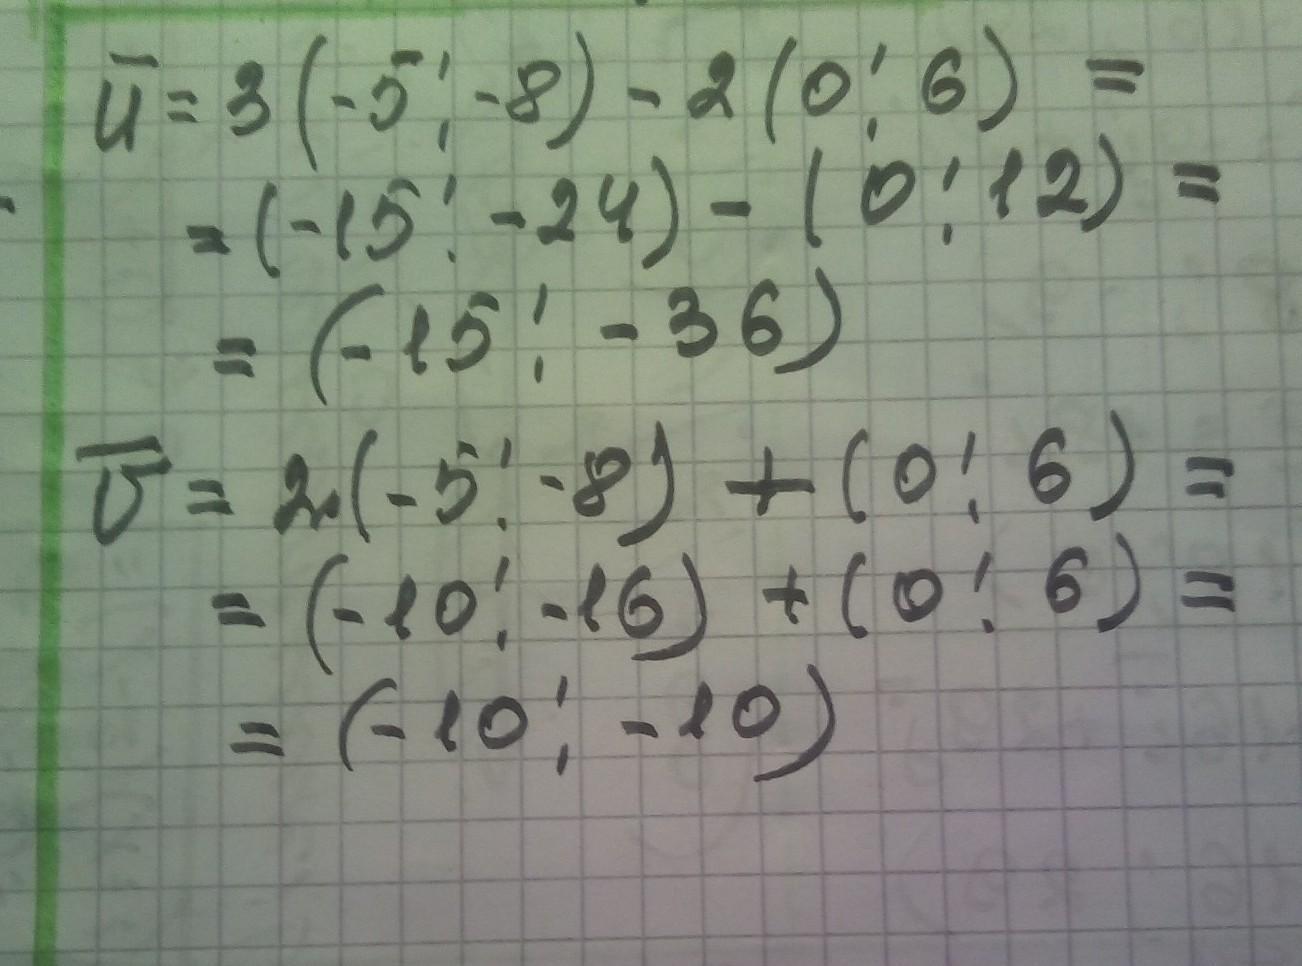 ū = 3(-5; -8) - 2(0; 6) =
= (-15; -24) - (0; 12) =
= (-15; -36)
v̅ = 2·(-5; -8) + (0; 6) =
= (-10; -16) + (0; 6) =
= (-10; -10)